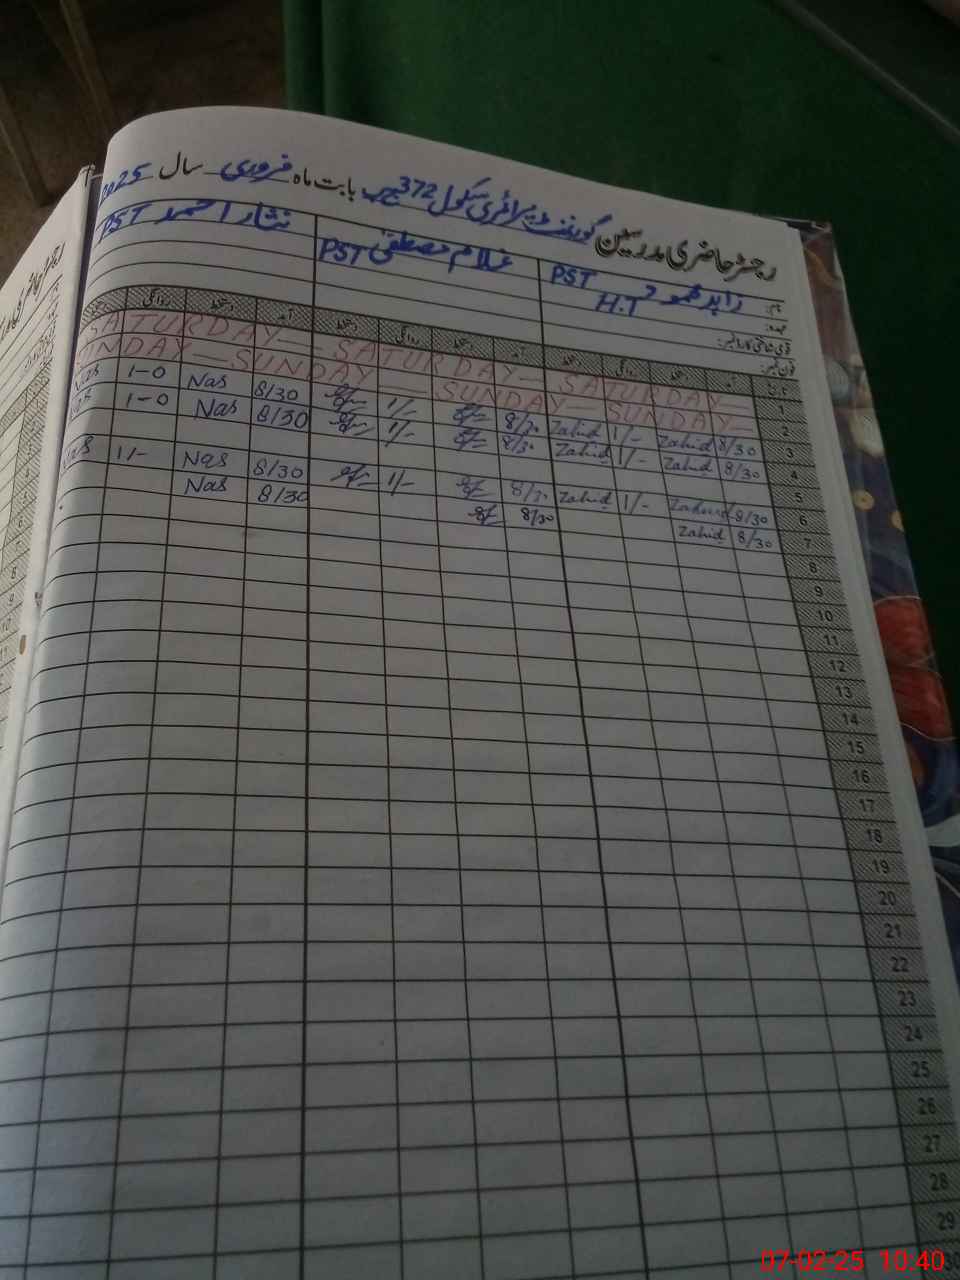 رجسٹر حاضری مدرسین گورنمنٹ پرائمری سکول 372 ج ب بابت ماہ فروری سال 2025
نام: زاہد محمود PST غلام مصطفیٰ PST نثار احمد PST
عہدہ: H.T
قومی شناختی کارڈ نمبر:
فون نمبر:
تاریخ آمد دستخط روانگی دستخط آمد دستخط روانگی دستخط آمد دستخط روانگی
1 SATURDAY — SATURDAY — SATURDAY —
2 SUNDAY — SUNDAY — SUNDAY — SUNDAY —
3 8/30 Zahid 1/- Zahid 8/30 1/- 8/30 Nas 1-0 Nas
4 8/30 Zahid 1/- Zahid 8/30 1/- 8/30 Nas 1-0 Nas
5
6 8/30 Zahid 1/- Zahid 8/30 1/- 8/30 Nas 1/- Nas
7 8/30 Zahid 8/30 8/30 Nas
8
9
10
11
12
13
14
15
16
17
18
19
20
21
22
23
24
25
26
27
28
29
07-02-25 10:40